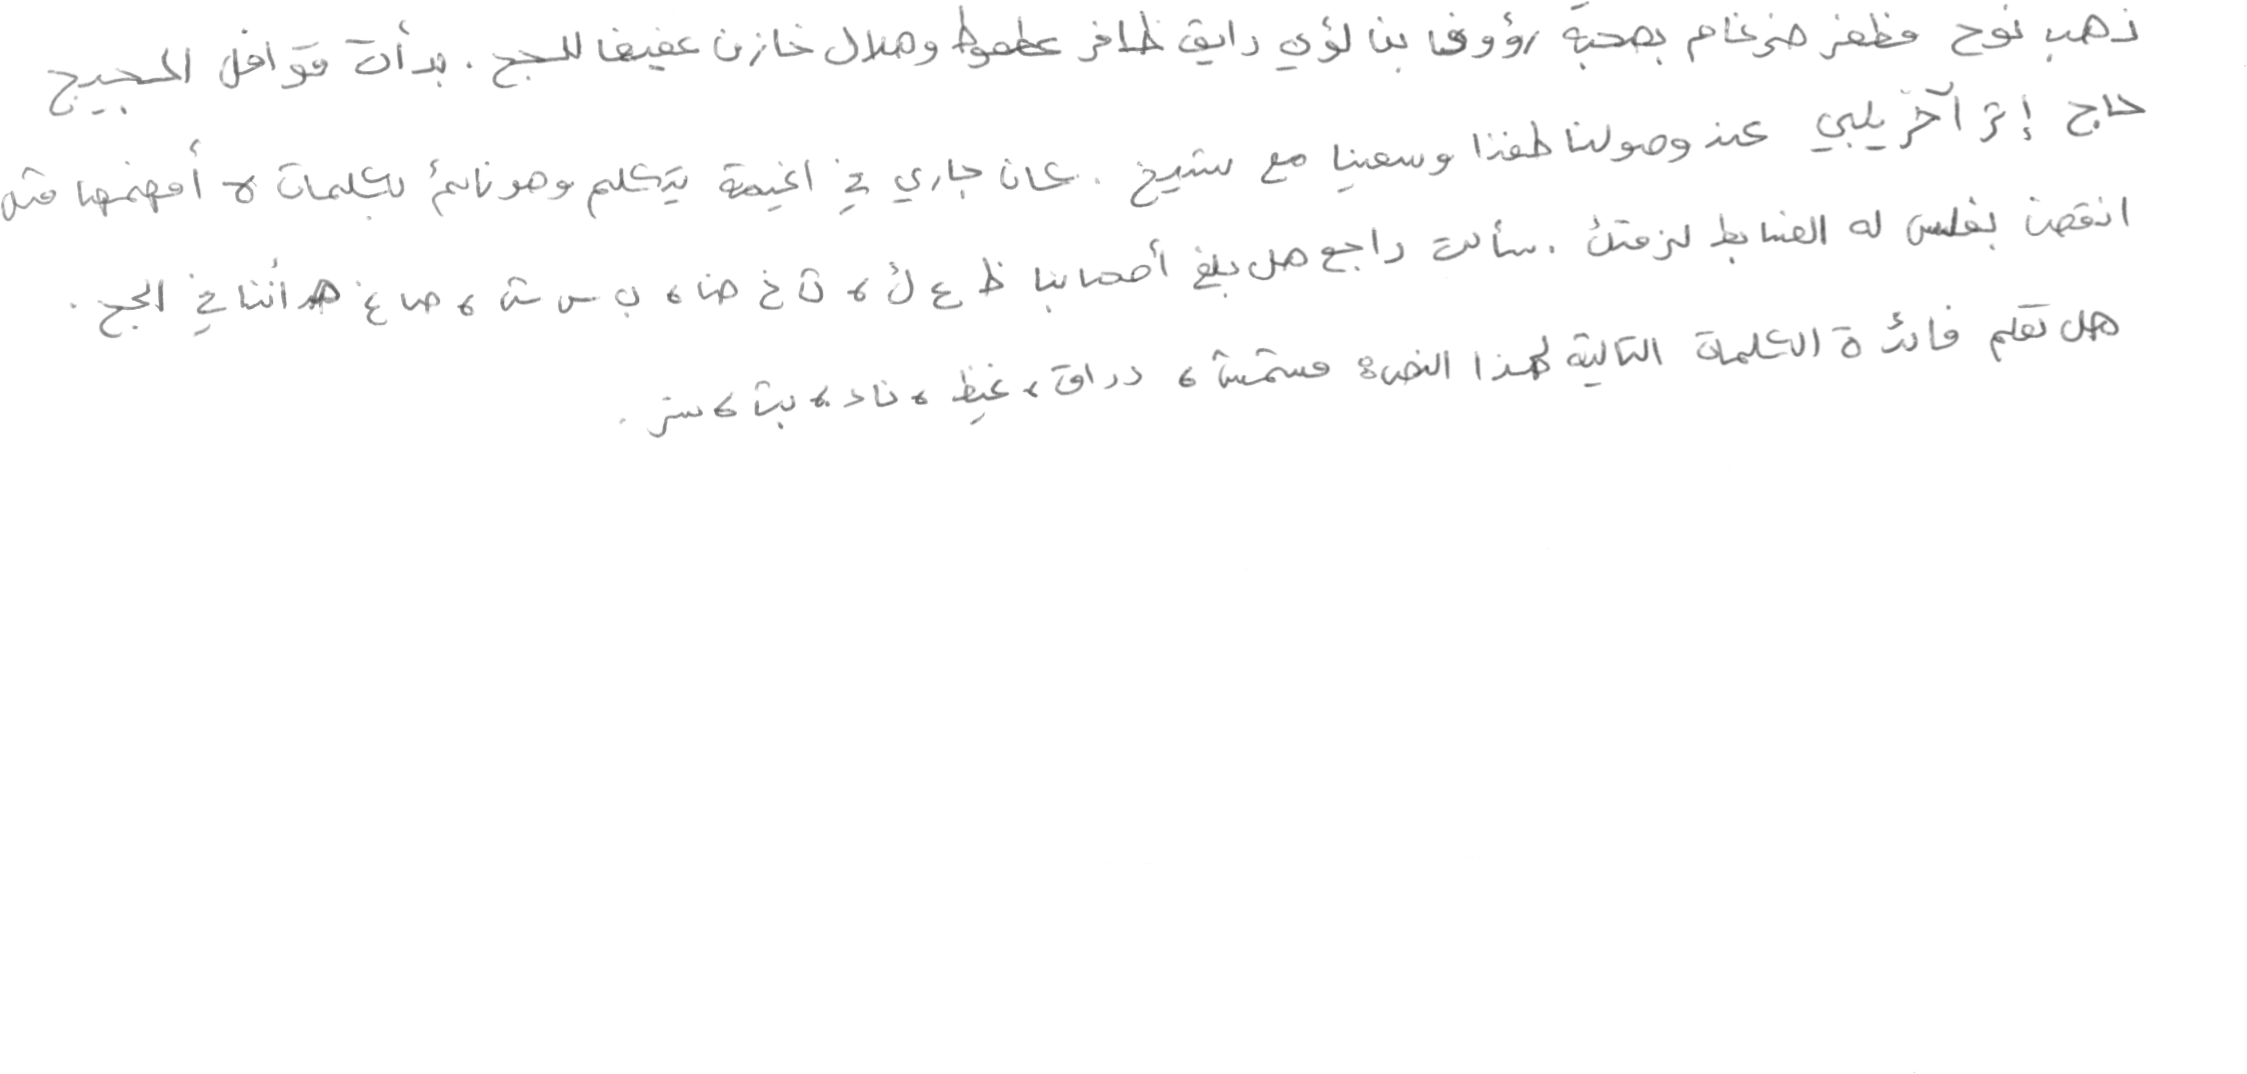 ذهب نوح مظفر ضرغام بصحبة رؤوف بن لؤي رايق ظافر عطعوط وهلال خازن عفيف للحج . بدأت قوافل الحجيج
حاج إثر آخر يلبي عند وصولنا طفنا وسعينا مع شيخ . كان جاري في الخيمة يتكلم وهو نائم بكلمات لا أفهمها مثل
انقصن بغلس له الضابط لزمتك . سألت راجع هل بلغ أصحابنا ظ ع ك ، ث خ ض ، ب س ش ، ص غ هـ أننا في الحج .
هل تعلم فائدة الكلمات التالية لهذا النص : مستمش ، دراق ، غيظ ، ناد ، بث ، ستر .